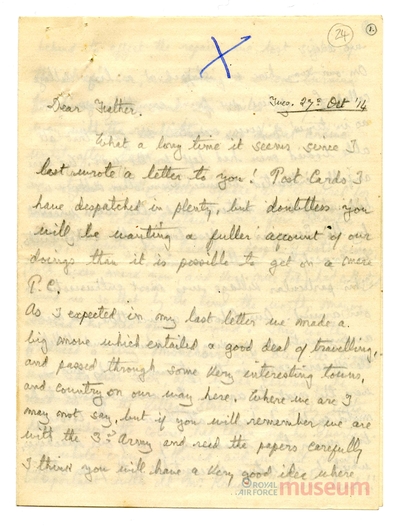 24
1.
Tues. 27th Oct '14
Dear Father.
What a long time it seems since I
last wrote a letter to you! Post Cards I
have despatched in plenty, but doubtless you
will be wanting a fuller account of our
doings than it is possible to get on a mere
P.C.
As I expected in my last letter we made a
big move which entailed a good deal of travelling,
and passed through some very interesting towns,
and country on our way here. Where we are I
may not say, but if you will remember we are
with the 3rd Army and read the papers carefully
I think you will have a very good idea where
ROYAL
AIR FORCE museum